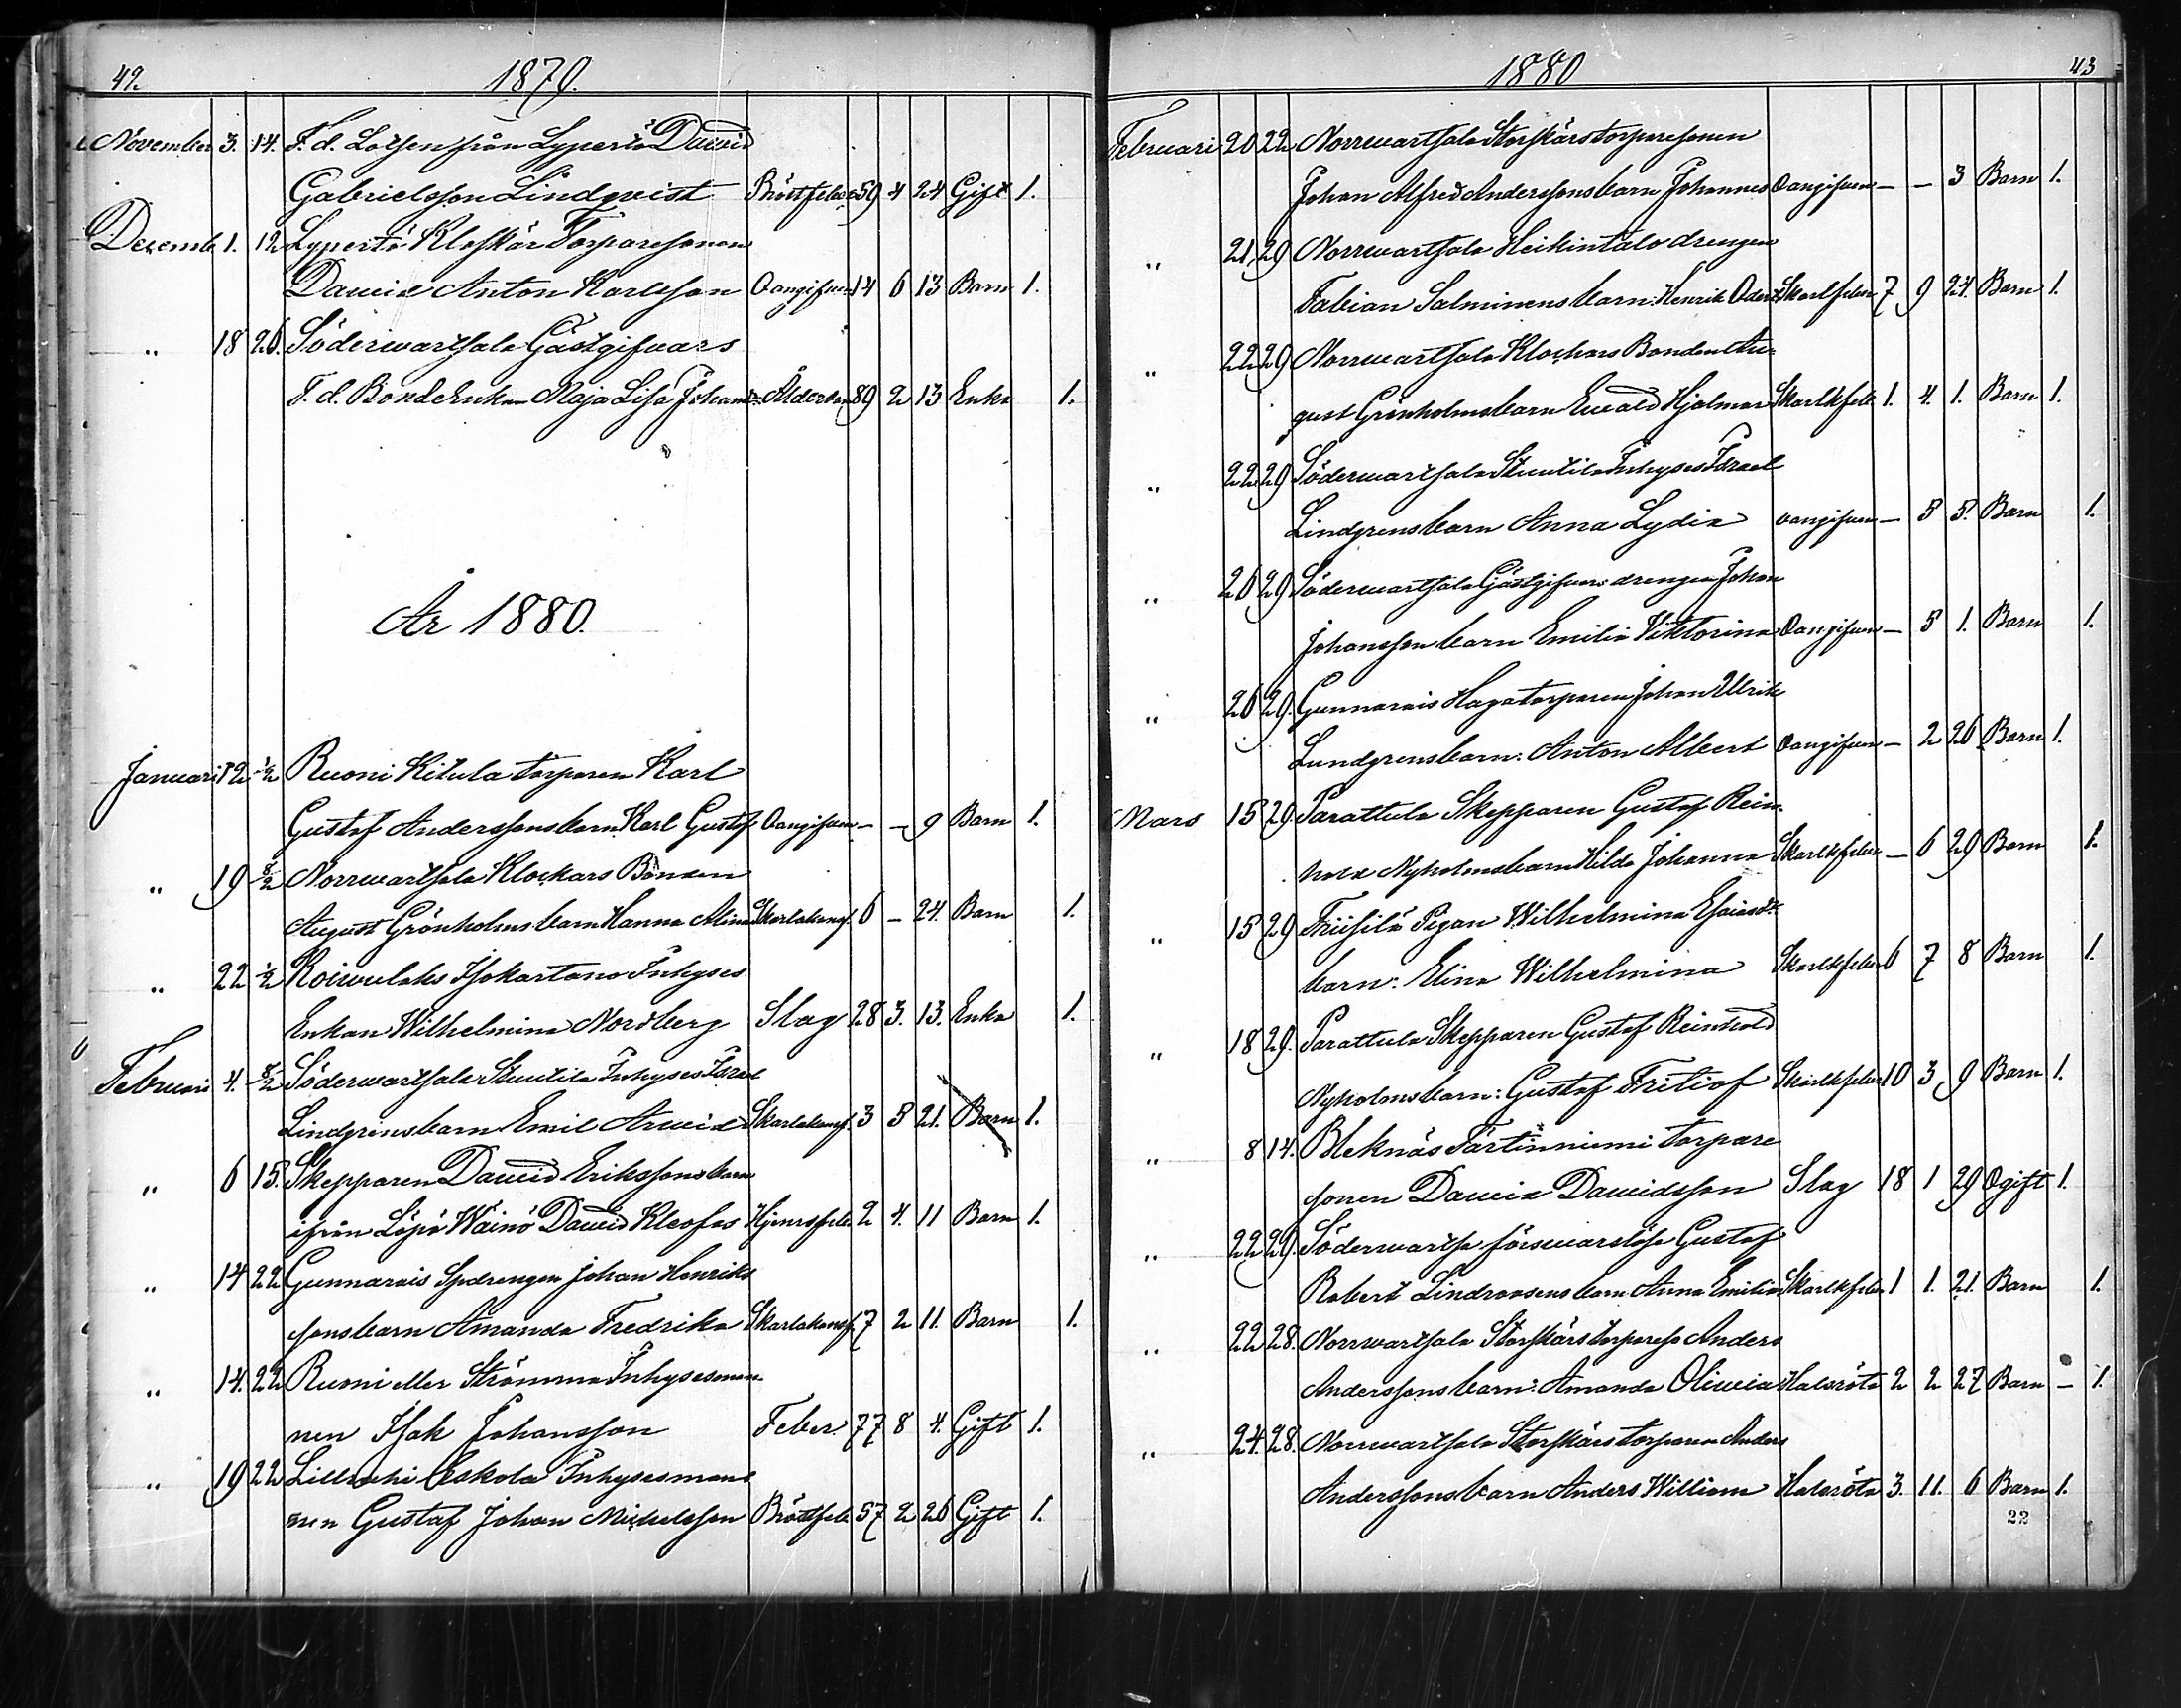 42.
1879.
November 3. 14. F. d. Lotsen från Lypertö David
Gabrielsson Lindqvist Bröstfeber 59 4 24 Gift 1.
Decemb 1. 12 Lypertö Klefskär Torparesonen
David Anton Karlsson Oangifven 14 6 13 Barn 1.
„ 18 26. Söderwartsala Gästgifvars
F. d. Bonde Enkan Maja Lisa Johansdr Ålderdom 89 2 13 Enka 1.
År 1880.
Januari 12 1/2 Ruoni Kitula torparen Karl
Gustaf Anderssons barn Karl Gustaf Oangifven — — 9 Barn 1.
„ 19 8/2 Norrwartsala Klockars Bonden
August Grönholms barn Hanna Alina Skarlakansf. 6 — 24. Barn 1.
„ 22 1/2 Koivulaks Isokartano Inhyses
Enkan Wilhelmina Nordberg Slag 28 3. 13. Enka 1.
Februari 4. 8/2 Söderwartsala Inhyses Israel
Lindgrens barn Emil Arvid Skarlakansf. 3 5 21. Barn 1.
„ 6 15. Skepparen David Erikssons barn
ifrån Löpö Wäinö David Kleofas Hjernfeb. 2 4. 11 Barn 1.
„ 14 22 Gunnarais Spdrengen Johan Henriks
sons barn Amanda Fredrika Skarlakansf. 7 2 11. Barn 1.
„ 14. 22 Ruoni eller Strömma Inhysesman
nen Isak Johansson Feber 77 8 4. Gift 1.
„ 19 22 Eskola Inhysesman
nen Gustaf Johan Michelsson Bröstfeb. 57 2 26 Gift 1.
1880
43
Februari 20 22 Norrwartsala Storskärs torparesonen
Johan Alfred Anderssons barn Johannes Oangifven — — 3 Barn 1.
„ 21 29 Norrwartsala Heikintalo drengen
Fabian Salminens barn: Henrik Skarlkfeber 7 9 24. Barn 1.
„ 22 29 Norrwartsala Klockars Bonden Au-
gust Grönholms barn Evald Hjalmar Skarlkfeb 1. 4. 1. Barn 1.
„ 22 29 Söderwartsala Inhyses Israel
Lindgrens barn Anna Lydia oangifven — 5 5. Barn 1.
„ 26 29 Söderwartsala Gästgifvars drengen Johan
Johansson barn Emilia Viktorina Oangifven — 5 1. Barn 1.
„ 26 29. Gunnarais Haga torparen Johan Ulrik
Lundgrens barn: Anton Albert Oangifven — 2 26 Barn 1.
Mars 15 29. Parattula Skepparen Gustaf Rein-
hold Nyholms barn Hilda Johanna Skarlkfeber — 6 29 Barn 1.
„ 15 29 Friisilä Pigan Wilhelmina Esaiasdr
barn: Elina Wilhelmina Skarlkfeber 6 7 8 Barn 1.
„ 18 29. Parattula Skepparen Gustaf Reinhold
Nyholms barn: Gustaf Fritiof Skarlkfeber 10 3 9 Barn 1.
„ 8 14. Bleknäs Färtinniemi torpare
sonen David Davidsson Slag 18 1 29 Ogift 1.
„ 22 29. Söderwartsa försvarslöse Gustaf
Robert Lindroosens barn Anna Emilia Skarlkfeber 1 1. 21. Barn 1.
„ 22 28. Norrwartsala Storskärs torpareso Anders
Anderssons barn: Amanda Olivia Halsröta 2 2 27 Barn — 1.
„ 24. 28. Norrwartsala Storskärs torparen Anders
Anderssons barn Anders William Halsröta 3. 11. 6 Barn 1.
22